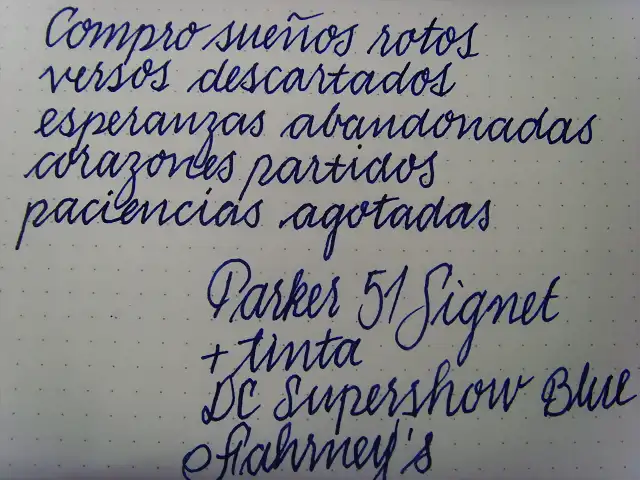 Compro sueños rotos
versos descartados
esperanzas abandonadas
corazones partidos
paciencias agotadas
Parker 51 Signet
+ tinta
DC Supershow Blue
Fahrney's